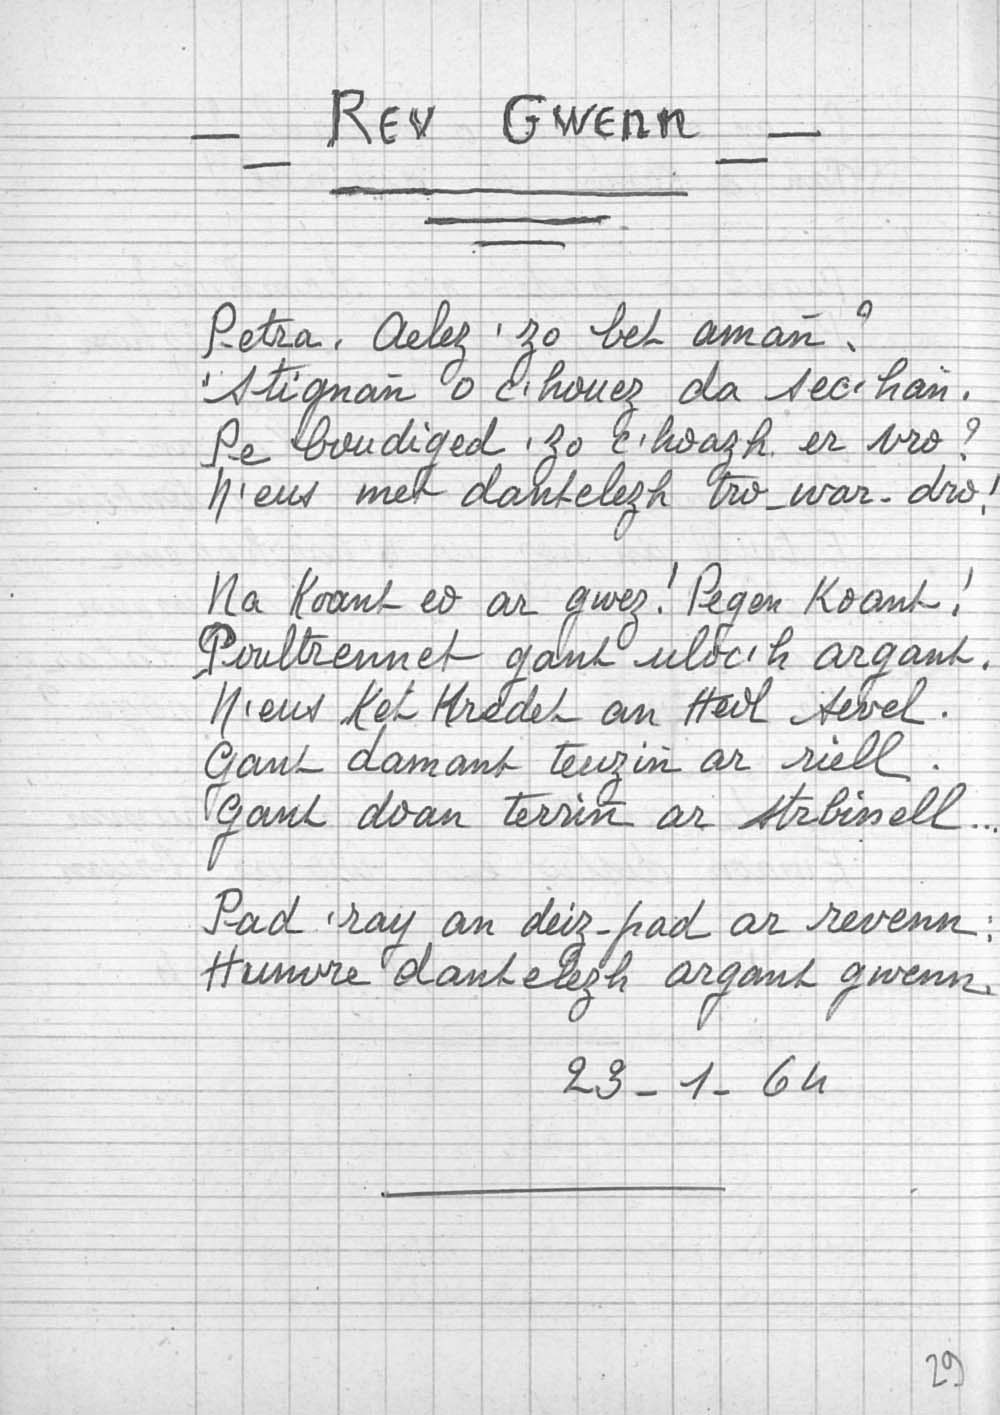 Rev Gwenn
Petra, Aelez 'zo bet amañ?
'Stignañ o c'houez da sec'hañ.
Pe boudiged 'zo c'hoazh er vro?
N'eus met dantelezh tro-war-dro!
Na koant eo ar gwez! Pegen koant!
Poultrennet gant uloc'h argant.
N'eus ket kredet an Heol sevel.
Gant damant teuziñ ar riell.
Gant doan terriñ ar strbinell...
Pad 'ray an deiz-pad ar revenn:
Hunvre dantelezh argant gwenn.
23-1-64
29